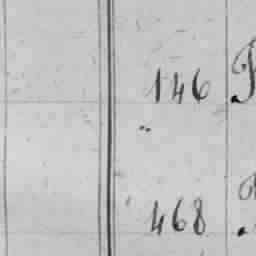 146
468